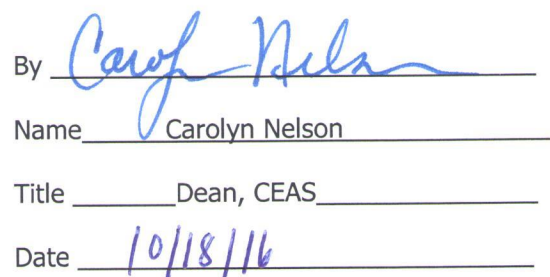 By Carolyn Nelson
Name Carolyn Nelson
Title Dean, CEAS
Date 10/18/16